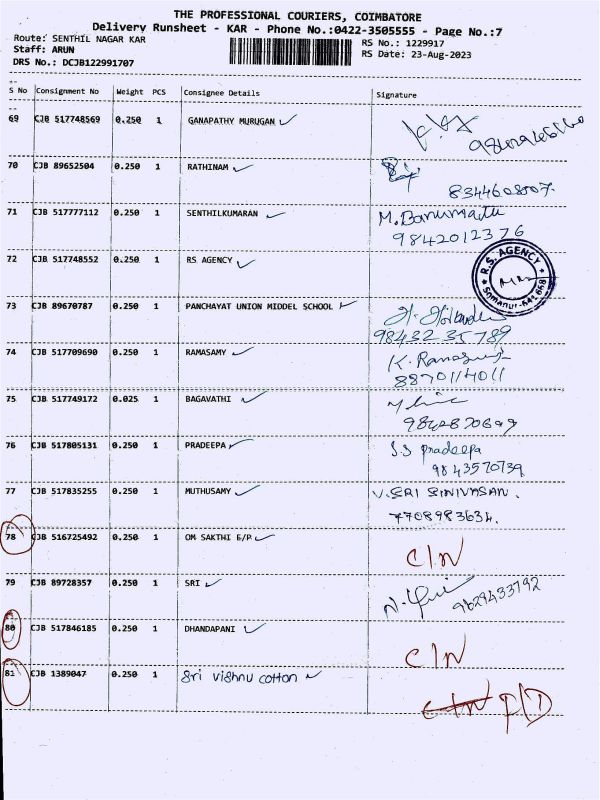 THE PROFESSIONAL COURIERS, COIMBATORE
Delivery Runsheet - KAR - Phone No.:0422-3505555 - Page No.:7
Route: SENTHIL NAGAR KAR
RS No.: 1229917
Staff: ARUN
RS Date: 23-Aug-2023
DRS No.: DCJB122991707
S No Consignment No Weight PCS Consignee Details Signature
69 CJB 517748569 0.250 1 GANAPATHY MURUGAN
70 CJB 89652504 0.250 1 RATHINAM
8344608007.
71 CJB 517777112 0.250 1 SENTHILKUMARAN M. Banumathi
9842012376
72 CJB 517748552 0.250 1 RS AGENCY
R.S. AGENCY
Somanur-641 668
73 CJB 89670787 0.250 1 PANCHAYAT UNION MIDDEL SCHOOL
9843235789
74 CJB 517709690 0.250 1 RAMASAMY
8870114011
75 CJB 517749172 0.025 1 BAGAVATHI
76 CJB 517805131 0.250 1 PRADEEPA S.S pradeepa
9843570739
77 CJB 517835255 0.250 1 MUTHUSAMY V. SRI SINIVASAN.
7708983634.
78 CJB 516725492 0.250 1 OM SAKTHI E/P
C/N
79 CJB 89728357 0.250 1 SRI
9629433792
80 CJB 517846185 0.250 1 DHANDAPANI
C/N
81 CJB 1389047 0.250 1 Sri vishnu cotton
C/N P/D